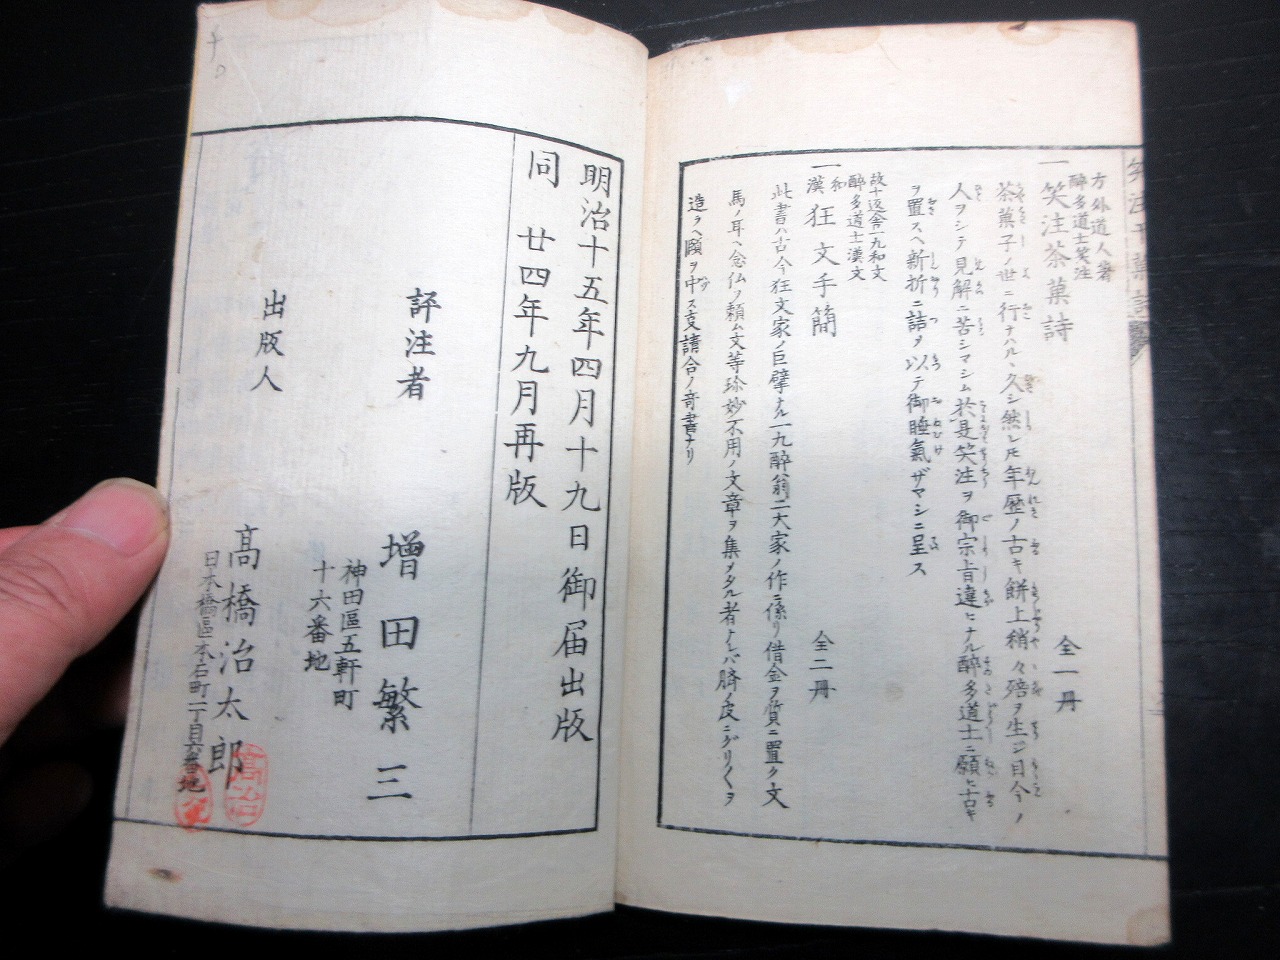 方外道人著
醉多道士笑注
一笑注茶菓詩
全一冊
茶菓子ノ世ニ行ナハル丶久シ然レ𪜈年歴ノ古キ餅上稍々殕ヲ生ジ日今ノ
人ヲシテ見解ニ苦シマシム於是笑注ヲ御宗旨違ヒナル醉多道士ニ願ヒ古キ
ヲ置スヘ新折ニ詰ヲ以テ御睡氣ザマシニ呈ス
故十返舎一九和文
醉多道士漢文
一和漢狂文手簡
全二冊
此書ハ古今狂文家ノ巨擘ナル一九醉翁二大家ノ作ニ係リ借金ヲ質ニ置ク文
馬ノ耳ヘ念仏ノ頼ム文等珍妙不用ノ文章ヲ集ヲタル者ナレバ臍ノ皮ニグリ〱ヲ
造ラヘ願ヲ中ス支請合ノ奇書ナリ
明治十五年四月十九日御届出版
同 廿四年九月再版
評注者
増田繁三
神田區五軒町
十六番地
出版人
髙橋治太郎
日本橋區本石町二丁目六番地
髙治